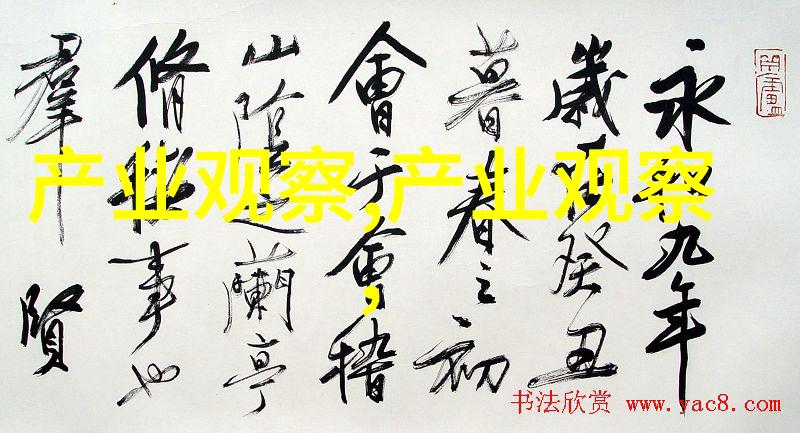 永和九年
歲在癸丑
暮春之初
會于會稽
山陰之蘭亭
脩稧事也
羣賢
产业观察,产业观察
,
书法欣赏 www.yac8.com